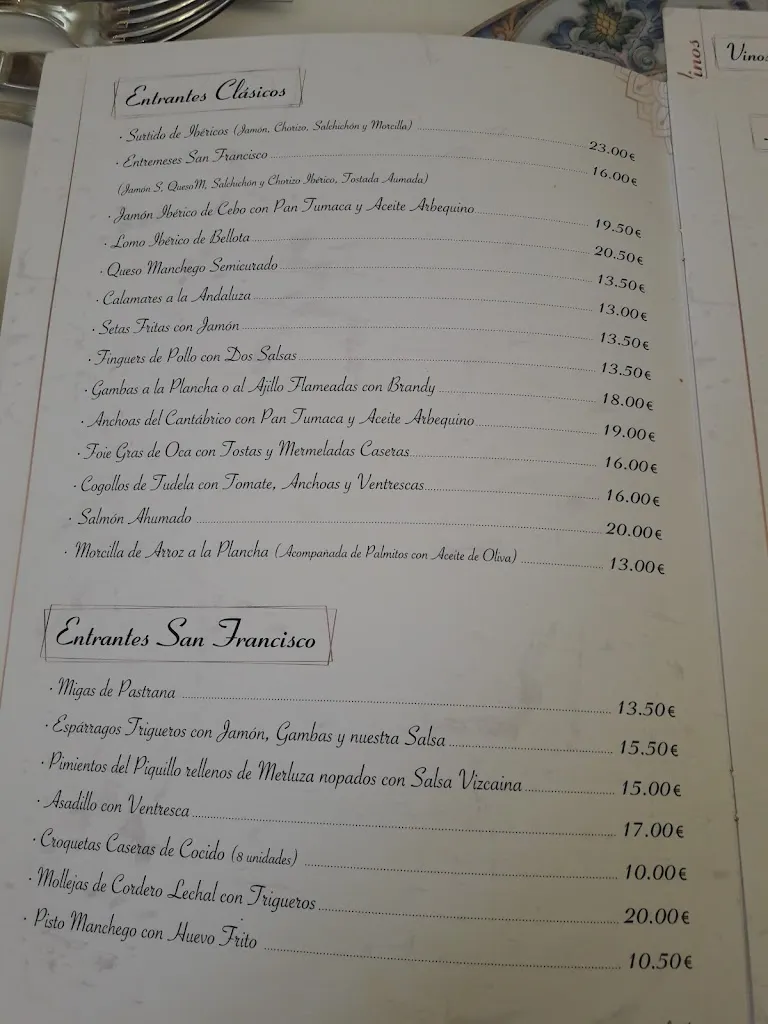 Entrantes Clásicos
· Surtido de Ibéricos (Jamón, Chorizo, Salchichón y Morcilla) 23.00€
· Entremeses San Francisco 16.00€
(Jamón S, QuesoM, Salchichón y Chorizo Ibérico, Tostada Aumada)
· Jamón Ibérico de Cebo con Pan Tumaca y Aceite Arbequino 19.50€
· Lomo Ibérico de Bellota 20.50€
· Queso Manchego Semicurado 13.50€
· Calamares a la Andaluza 13.00€
· Setas Fritas con Jamón 13.50€
· Finguers de Pollo con Dos Salsas 13.50€
· Gambas a la Plancha o al Ajillo Flameadas con Brandy 18.00€
· Anchoas del Cantábrico con Pan Tumaca y Aceite Arbequino 19.00€
· Foie Gras de Oca con Tostas y Mermeladas Caseras 16.00€
· Cogollos de Tudela con Tomate, Anchoas y Ventrescas 16.00€
· Salmón Ahumado 20.00€
· Morcilla de Arroz a la Plancha (Acompañada de Palmitos con Aceite de Oliva) 13.00€
Entrantes San Francisco
· Migas de Pastrana 13.50€
· Espárragos Trigueros con Jamón, Gambas y nuestra Salsa 15.50€
· Pimientos del Piquillo rellenos de Merluza nopados con Salsa Vizcaina 15.00€
· Asadillo con Ventresca 17.00€
· Croquetas Caseras de Cocido (8 unidades) 10.00€
· Mollejas de Cordero Lechal con Trigueros 20.00€
· Pisto Manchego con Huevo Frito 10.50€
Vinos
Vinos